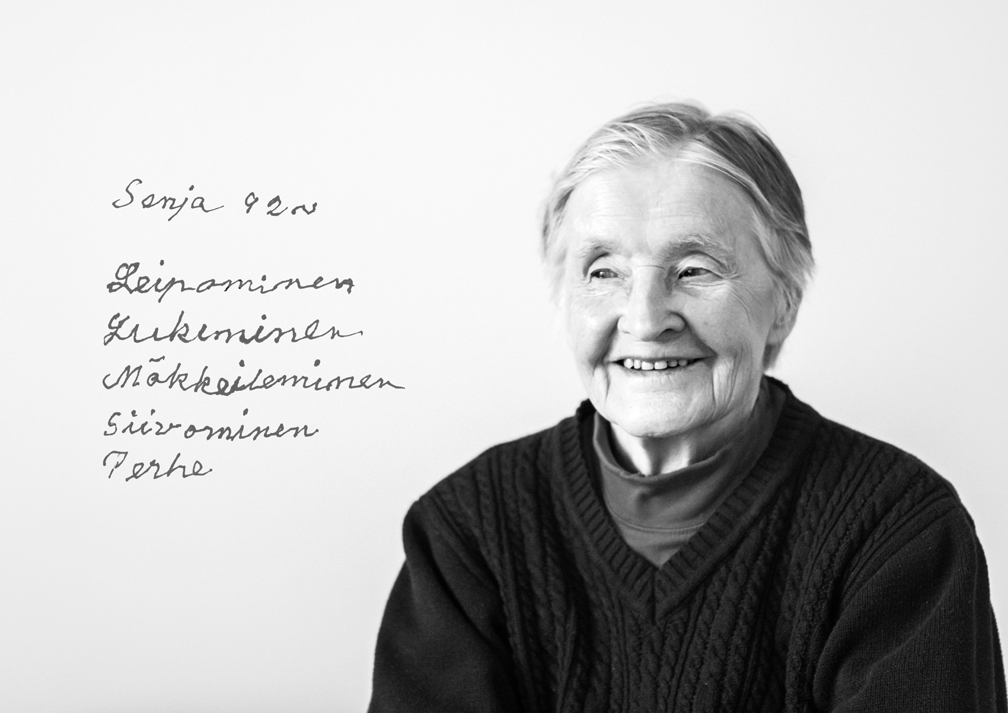 Sonja 92v
Leipominen
Lukeminen
Mökkeileminen
Siivominen
Perhe